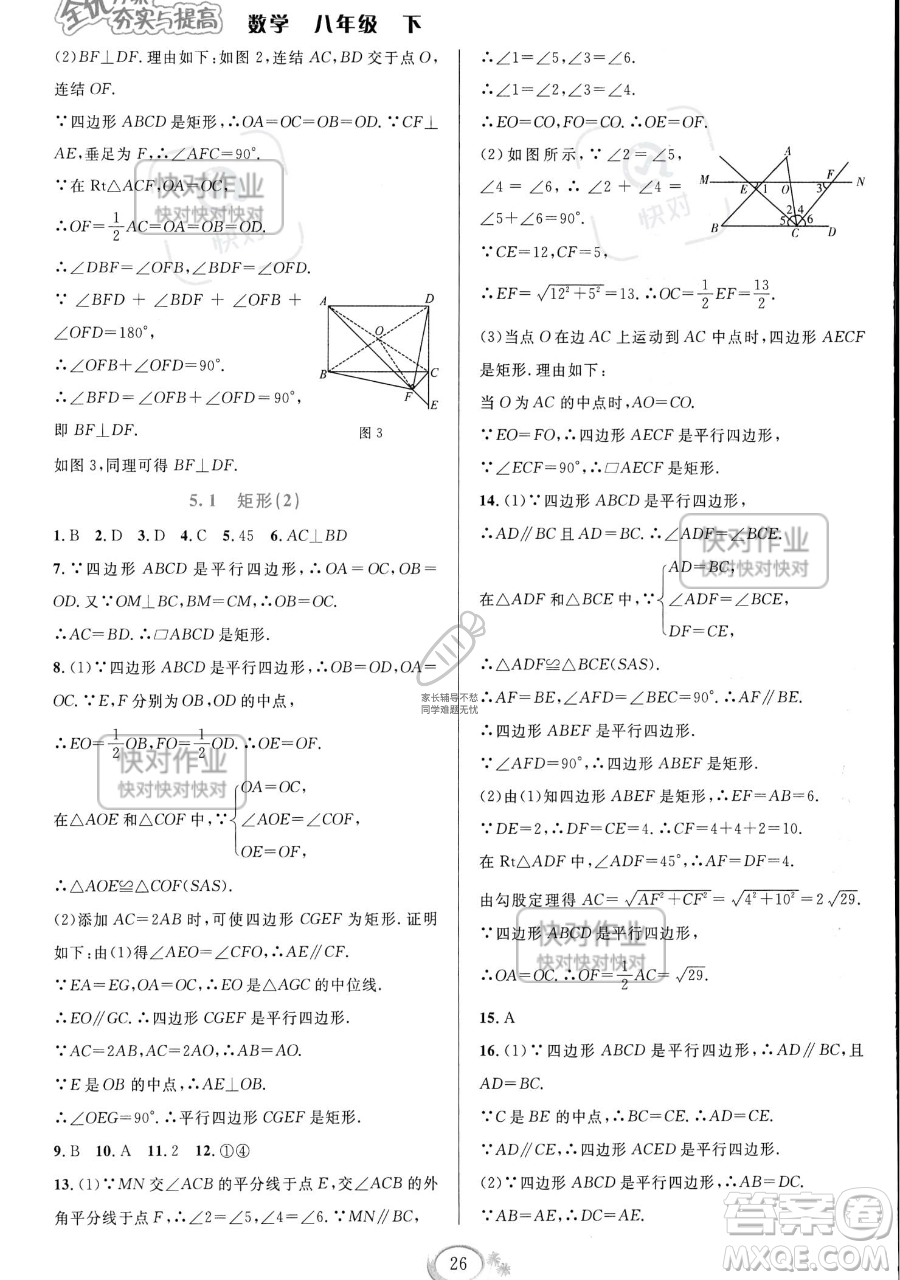 全优方案
夯实与提高
数学 八年级 下
(2)BF⊥DF.理由如下:如图2,连结AC,BD交于点O,
连结OF.
∵四边形ABCD是矩形,∴OA=OC=OB=OD.∵CF⊥
AE,垂足为F,∴∠AFC=90°.
∵在Rt△ACF,OA=OC,
∴OF=1/2AC=OA=OC=OB=OD.
∴∠DBF=∠OFB,∠BDF=∠OFD.
∵∠BFD+∠BDF+∠OFB+
∠OFD=180°,
∴∠OFB+∠OFD=90°.
∴∠BFD=∠OFB+∠OFD=90°,
即BF⊥DF.
如图3,同理可得BF⊥DF.
A
D
O
B
C
F
E
图3
5.1 矩形(2)
1.B 2.D 3.D 4.C 5.45 6.AC⊥BD
7.∵四边形ABCD是平行四边形,∴OA=OC,OB=
OD.又∵OM⊥BC,BM=CM,∴OB=OC.
∴AC=BD.∴□ABCD是矩形.
8.(1)∵四边形ABCD是平行四边形,∴OB=OD,OA=
OC.∵E,F分别为OB,OD的中点,
∴EO=1/2OB,FO=1/2OD.∴OE=OF.
在△AOE和△COF中,∵{OA=OC,
∠AOE=∠COF,
OE=OF,
∴△AOE≌△COF(SAS).
(2)添加AC=2AB时,可使四边形CGEF为矩形.证明
如下:由(1)得∠AEO=∠CFO,∴AE∥CF.
∵EA=EG,OA=OC,∴EO是△AGC的中位线.
∴EO∥GC.∴四边形CGEF是平行四边形.
∵AC=2AB,AC=2OA,∴AB=AO.
∵E是OB的中点,∴AE⊥OB.
∴∠OEG=90°.∴平行四边形CGEF是矩形.
9.B 10.A 11.2 12.①④
13.(1)∵MN交∠ACB的平分线于点E,交∠ACB的外
角平分线于点F,∴∠2=∠5,∠4=∠6.∵MN∥BC,
∴∠1=∠5,∠3=∠6.
∴∠1=∠2,∠3=∠4.
∴EO=CO,FO=CO.∴OE=OF.
(2)如图所示,∵∠2=∠5,
∠4=∠6,∴∠2+∠4=
∠5+∠6=90°.
∵CE=12,CF=5,
∴EF=√(12²+5²)=13.∴OC=1/2EF=13/2.
A
M
E
1
O
3
F
N
2
4
5
6
B
C
D
(3)当点O在边AC上运动到AC中点时,四边形AECF
是矩形.理由如下:
当O为AC的中点时,AO=CO.
∵EO=FO,∴四边形AECF是平行四边形.
∵∠ECF=90°,∴□AECF是矩形.
14.(1)∵四边形ABCD是平行四边形,
∴AD∥BC且AD=BC.∴∠ADF=∠BCE.
在△ADF和△BCE中,∵{AD=BC,
∠ADF=∠BCE,
DF=CE,
∴△ADF≌△BCE(SAS).
∴AF=BE,∠AFD=∠BEC=90°.∴AF∥BE.
∴四边形ABEF是平行四边形.
∵∠AFD=90°,∴四边形ABEF是矩形.
(2)由(1)知四边形ABEF是矩形,∴EF=AB=6.
∵DE=2,∴DF=CE=4.∴CF=4+4+2=10.
在Rt△ADF中,∠ADF=45°,∴AF=DF=4.
由勾股定理得AC=√(AF²+CF²)=√(4²+10²)=2√29.
∵四边形ABCD是平行四边形,
∴OA=OC.∴OF=1/2AC=√29.
15.A
16.(1)∵四边形ABCD是平行四边形,∴AD∥BC,且
AD=BC.
∵C是BE的中点,∴BC=CE.∴AD=CE.
∵AD∥CE,∴四边形ACED是平行四边形.
(2)∵四边形ABCD是平行四边形,∴AB=DC.
∵AB=AE,∴DC=AE.
26
快对作业
快对快对快对
快对
快对作业
快对快对快对
家长辅导不愁
同学难题无忧
快对作业
快对快对快对
快对作业
快对快对快对
答案卷
MXQE.COM